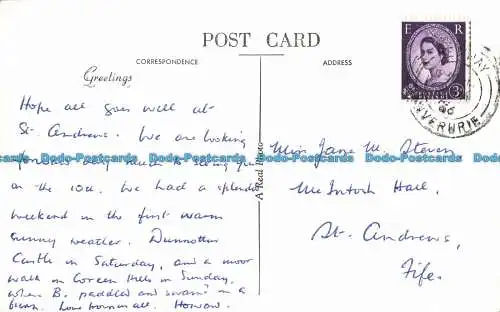 POST CARD
CORRESPONDENCE
ADDRESS
Greetings
Hope all goes well at
St. Andrews. We are looking
forward very much to seeing you
on the 10th. We had a splendid
weekend in the first warm
sunny weather. Dunnottar
Castle on Saturday, and a moor
walk on Correen Hills on Sunday,
when B. paddled and swam in a
burn. Love from us all.
A Real Photo
Miss Jane M. Steven
McIntosh Hall,
St. Andrews,
Fife.
E R
3D
INVERURIE
Dodo-Postcards Dodo-Postcards Dodo-Postcards Dodo-Postcards